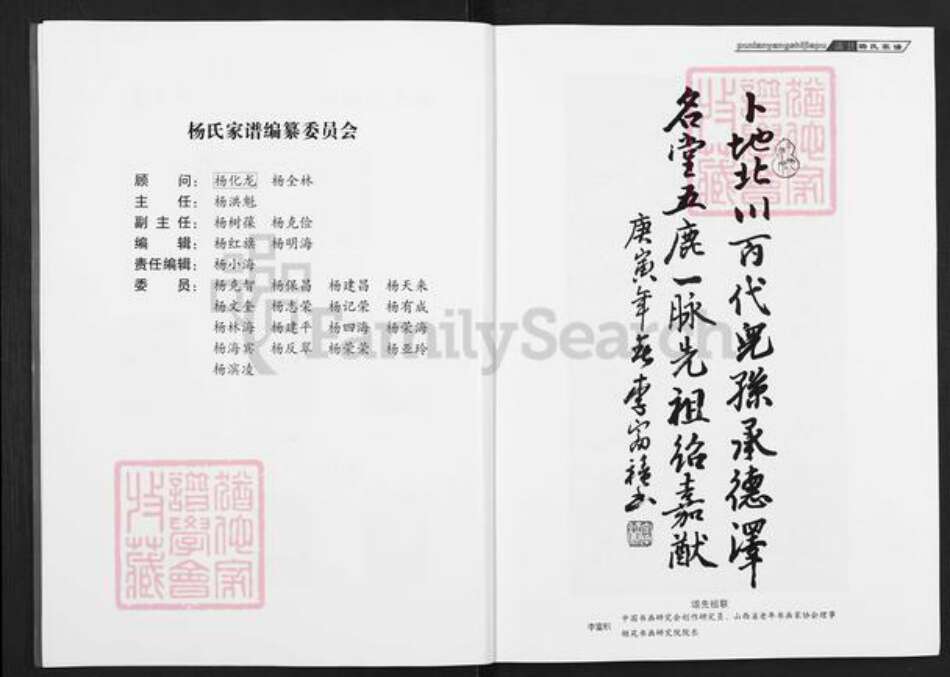 杨氏家谱编纂委员会
顾 问： 杨化龙 杨全林
主 任： 杨洪魁
副 主 任： 杨树葆 杨克俭
编 辑： 杨红旗 杨明海
责任编辑： 杨小海
委 员： 杨克智 杨保昌 杨建昌 杨天来
杨文全 杨志荣 杨记荣 杨有成
杨林海 杨建平 杨四海 杨荣海
杨海宾 杨反翠 杨荣荣 杨亚玲
杨滨凌
猶他家譜學會收藏
FamilySearch
杨氏家谱
卜地北川百代児孫承德澤
名堂五鹿一脉先祖绍嘉猷
庚寅年春李富積书
猶他家譜學會收藏
颂先祖联
李富积 中国书画研究会创作研究员、山西省老年书画家协会理事
书画研究院院长